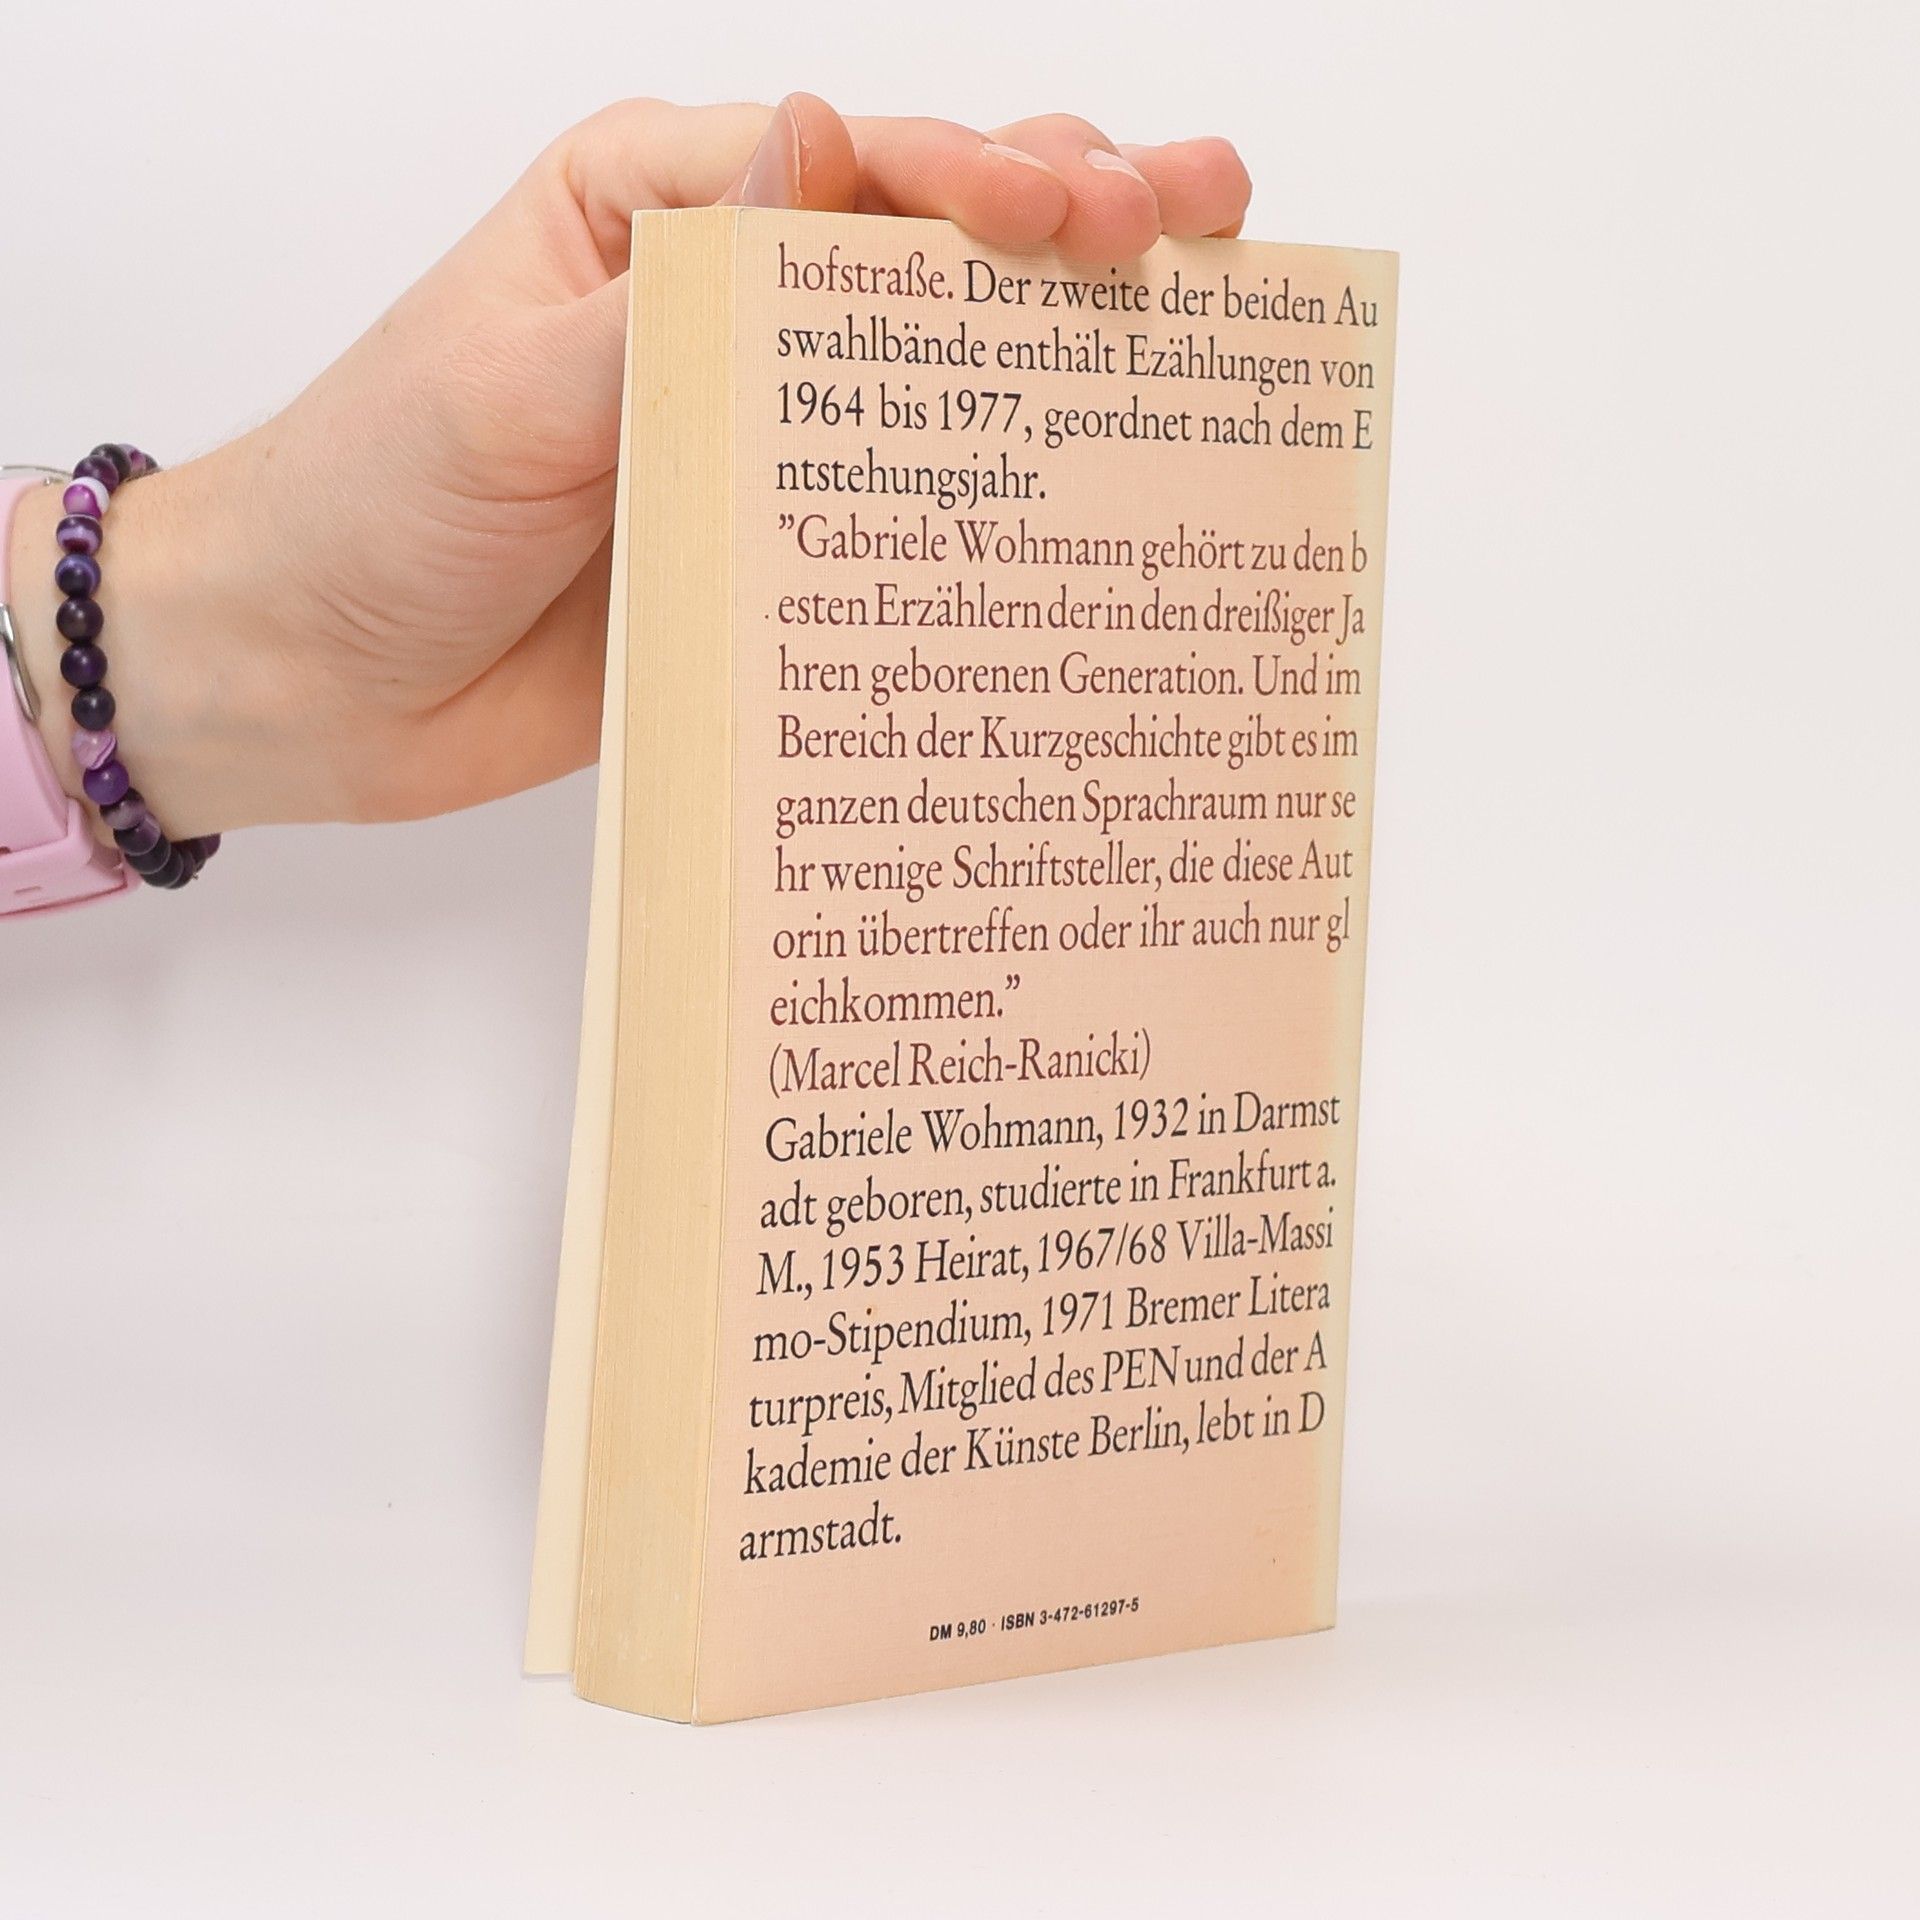 hofstraße. Der zweite der beiden Au
swahlbände enthält Ezählungen von
1964 bis 1977, geordnet nach dem E
ntstehungsjahr.
”Gabriele Wohmann gehört zu den b
esten Erzählern der in den dreißiger Ja
hren geborenen Generation. Und im
Bereich der Kurzgeschichte gibt es im
ganzen deutschen Sprachraum nur se
hr wenige Schriftsteller, die diese Aut
orin übertreffen oder ihr auch nur gl
eichkommen.”
(Marcel Reich-Ranicki)
Gabriele Wohmann, 1932 in Darmst
adt geboren, studierte in Frankfurt a.
M., 1953 Heirat, 1967/68 Villa-Massi
mo-Stipendium, 1971 Bremer Litera
turpreis, Mitglied des PEN und der A
kademie der Künste Berlin, lebt in D
armstadt.
DM 9,80 · ISBN 3-472-61297-5